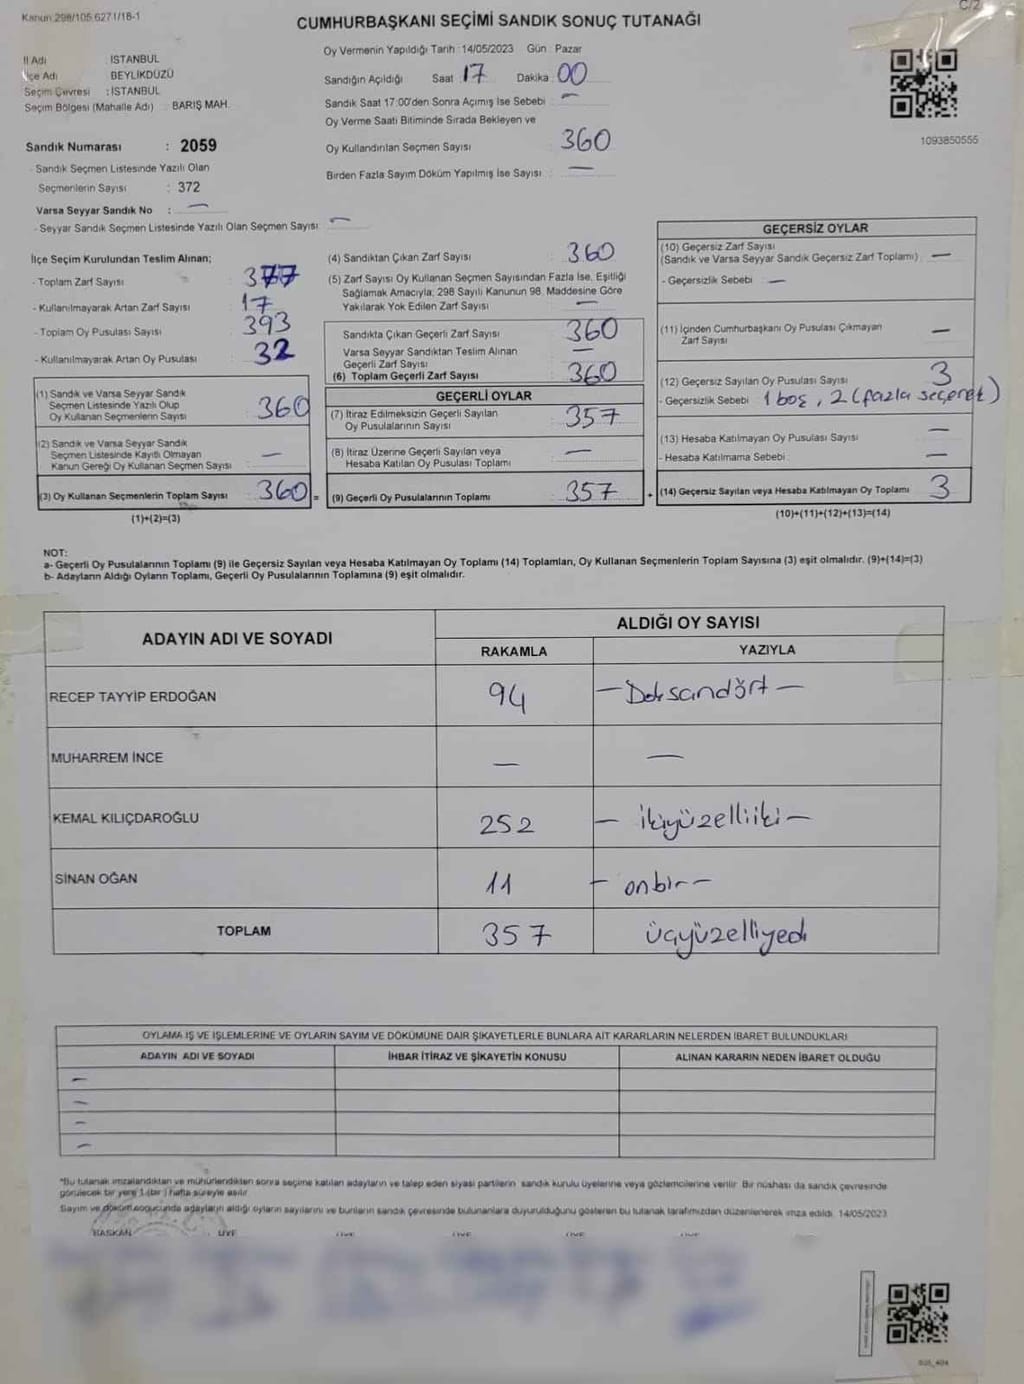 Kanun 298/105 6271/18-1
C/2
CUMHURBAŞKANI SEÇİMİ SANDIK SONUÇ TUTANAĞI
İl Adı : İSTANBUL
İlçe Adı : BEYLİKDÜZÜ
Seçim Çevresi : İSTANBUL
Seçim Bölgesi (Mahalle Adı) : BARIŞ MAH.
Oy Vermenin Yapıldığı Tarih :14/05/2023 Gün : Pazar
Sandığın Açıldığı Saat :17 Dakika :00
Sandık Saat 17:00'den Sonra Açımış İse Sebebi : —
Oy Verme Saati Bitiminde Sırada Bekleyen ve
Oy Kullandırılan Seçmen Sayısı : 360
Birden Fazla Sayım Döküm Yapılmış İse Sayısı : —
1093850555
Sandık Numarası : 2059
- Sandık Seçmen Listesinde Yazılı Olan
Seçmenlerin Sayısı : 372
Varsa Seyyar Sandık No : —
- Seyyar Sandık Seçmen Listesinde Yazılı Olan Seçmen Sayısı: —
İlçe Seçim Kurulundan Teslim Alınan;
- Toplam Zarf Sayısı : 377
- Kullanılmayarak Artan Zarf Sayısı : 17
- Toplam Oy Pusulası Sayısı : 393
- Kullanılmayarak Artan Oy Pusulası : 32
(1) Sandık ve Varsa Seyyar Sandık
Seçmen Listesinde Yazılı Olup
Oy Kullanan Seçmenlerin Sayısı : 360
(2) Sandık ve Varsa Seyyar Sandık
Seçmen Listesinde Kayıtlı Olmayan
Kanun Gereği Oy Kullanan Seçmen Sayısı : —
(3) Oy Kullanan Seçmenlerin Toplam Sayısı : 360 =
(1)+(2)=(3)
(4) Sandıktan Çıkan Zarf Sayısı : 360
(5) Zarf Sayısı Oy Kullanan Seçmen Sayısından Fazla İse, Eşitliği
Sağlamak Amacıyla; 298 Sayılı Kanunun 98. Maddesine Göre
Yakılarak Yok Edilen Zarf Sayısı : —
Sandıkta Çıkan Geçerli Zarf Sayısı : 360
Varsa Seyyar Sandıktan Teslim Alınan
Geçerli Zarf Sayısı : —
(6) Toplam Geçerli Zarf Sayısı : 360
GEÇERLİ OYLAR
(7) İtiraz Edilmeksizin Geçerli Sayılan
Oy Pusulalarının Sayısı : 357
(8) İtiraz Üzerine Geçerli Sayılan veya
Hesaba Katılan Oy Pusulası Toplamı : —
(9) Geçerli Oy Pusulalarının Toplamı : 357 +
GEÇERSİZ OYLAR
(10) Geçersiz Zarf Sayısı
(Sandık ve Varsa Seyyar Sandık Geçersiz Zarf Toplamı) : —
- Geçersizlik Sebebi : —
(11) İçinden Cumhurbaşkanı Oy Pusulası Çıkmayan
Zarf Sayısı : —
(12) Geçersiz Sayılan Oy Pusulası Sayısı : 3
- Geçersizlik Sebebi : 1 boş, 2 (fazla seçenek)
(13) Hesaba Katılmayan Oy Pusulası Sayısı : —
- Hesaba Katılmama Sebebi : —
(14) Geçersiz Sayılan veya Hesaba Katılmayan Oy Toplamı : 3
(10)+(11)+(12)+(13)=(14)
NOT:
a- Geçerli Oy Pusulalarının Toplamı (9) ile Geçersiz Sayılan veya Hesaba Katılmayan Oy Toplamı (14) Toplamları, Oy Kullanan Seçmenlerin Toplam Sayısına (3) eşit olmalıdır. (9)+(14)=(3)
b- Adayların Aldığı Oyların Toplamı, Geçerli Oy Pusulalarının Toplamına (9) eşit olmalıdır.
ADAYIN ADI VE SOYADI
ALDIĞI OY SAYISI
RAKAMLA YAZIYLA
RECEP TAYYİP ERDOĞAN 94 — Doksandört —
MUHARREM İNCE — —
KEMAL KILIÇDAROĞLU 252 — ikiyüzelliiki —
SİNAN OĞAN 11 — onbir —
TOPLAM 357 üçyüzelliyedi
OYLAMA İŞ VE İŞLEMLERİNE VE OYLARIN SAYIM VE DÖKÜMÜNE DAİR ŞİKAYETLERLE BUNLARA AİT KARARLARIN NELERDEN İBARET BULUNDUKLARI
ADAYIN ADI VE SOYADI İHBAR İTİRAZ VE ŞİKAYETİN KONUSU ALINAN KARARIN NEDEN İBARET OLDUĞU
—
—
—
—
*Bu tutanak imzalandıktan ve mühürlendikten sonra seçime katılan adayların ve talep eden siyasi partilerin sandık kurulu üyelerine veya gözlemcilerine verilir. Bir nüshası da sandık çevresinde
görülecek bir yere 1 (bir ) hafta süreyle asılır.
Sayım ve döküm sonucunda adayların aldığı oyların sayılarını ve bunların sandık çevresinde bulunanlara duyurulduğunu gösteren bu tutanak tarafımızdan düzenlenerek imza edildi. 14/05/2023
BAŞKAN ÜYE ÜYE ÜYE ÜYE ÜYE